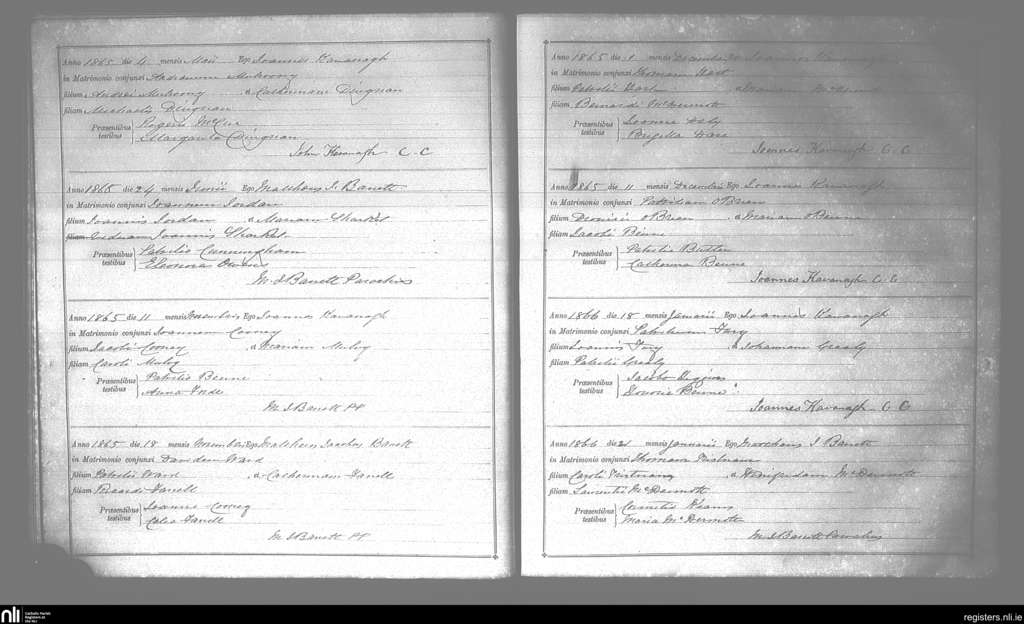 Anno 1865 die 4 mensis Maii Ego Joannes Kavanagh
in Matrimonio conjunxi
filium Andrei Mulroony & Catherinam Dingnan
filiam Michaelis Dingnan
Præsentibus testibus
Rogerio
Margarita Dingnan
John Kavanagh C. C
Anno 1865 die 24 mensis Junii Ego Mattheus J. Barrett
in Matrimonio conjunxi Joannem Jordan
filium Joannis Jordan & Mariam Sharket
filiam viduam Joannis Sharket
Præsentibus testibus
Patritio Cunningham
Eleonora
M. J Barrett Parochus
Anno 1865 die 11 mensis Novembris Ego Joannes Kavanagh
in Matrimonio conjunxi Joannem Cooney
filium Jacobi Cooney & Mariam Mulog
filiam Caroli Mulog
Præsentibus testibus
Patritio Beirne
Anna
M. J Barrett PP
Anno 1865 die 18 mensis Novembris Ego Mattheus Jacobus Barrett
in Matrimonio conjunxi Ward
filium Patritii Ward & Catherinam Farrell
filiam Farrell
Præsentibus testibus
Joanne Cooney
Farrell
M. J Barrett PP
Anno 1865 die 1 mensis Decembris Ego Joannes Kavanagh
in Matrimonio conjunxi Thomam
filium Patritii & Mariam McDermott
filiam Bernardi McDermott
Præsentibus testibus
Joanne Daly
Brigitta
Joannes Kavanagh C. C
Anno 1865 die 11 mensis Decembris Ego Joannes Kavanagh
in Matrimonio conjunxi Patritium O'Brien
filium Dionisii O'Brien & Mariam Beirne
filiam Jacobi Beirne
Præsentibus testibus
Patritio Butler
Catherina Beirne
Joannes Kavanagh C C
Anno 1866 die 18 mensis Januarii Ego Joannes Kavanagh
in Matrimonio conjunxi Patritium Fury
filium Joannis Fury & Johannam Grealy
filiam Patritii Grealy
Præsentibus testibus
Jacobo Diggins
Honoria Beirne
Joannes Kavanagh C C
Anno 1866 die 21 mensis Januarii Ego J Barrett
in Matrimonio conjunxi Thomam
filium Caroli & McDermott
filiam Laurentii McDermott
Præsentibus testibus
Cornelio
Maria McDermott
M. J Barrett Parochus
nli Catholic Parish Registers at the NLI
registers.nli.ie